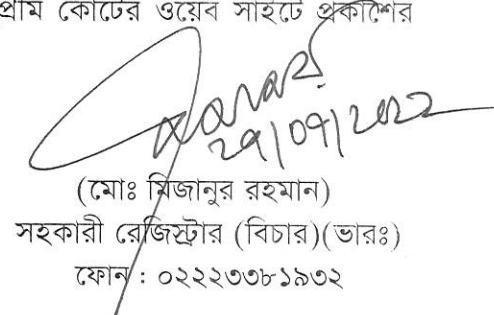 প্রীম কোর্টের ওয়েব সাইটে প্রকাশের
২৭/০৭/২০২২
(মোঃ মিজানুর রহমান)
সহকারী রেজিস্ট্রার (বিচার)(ভারঃ)
ফোন : ০২২২৩৩৮১৯৩২